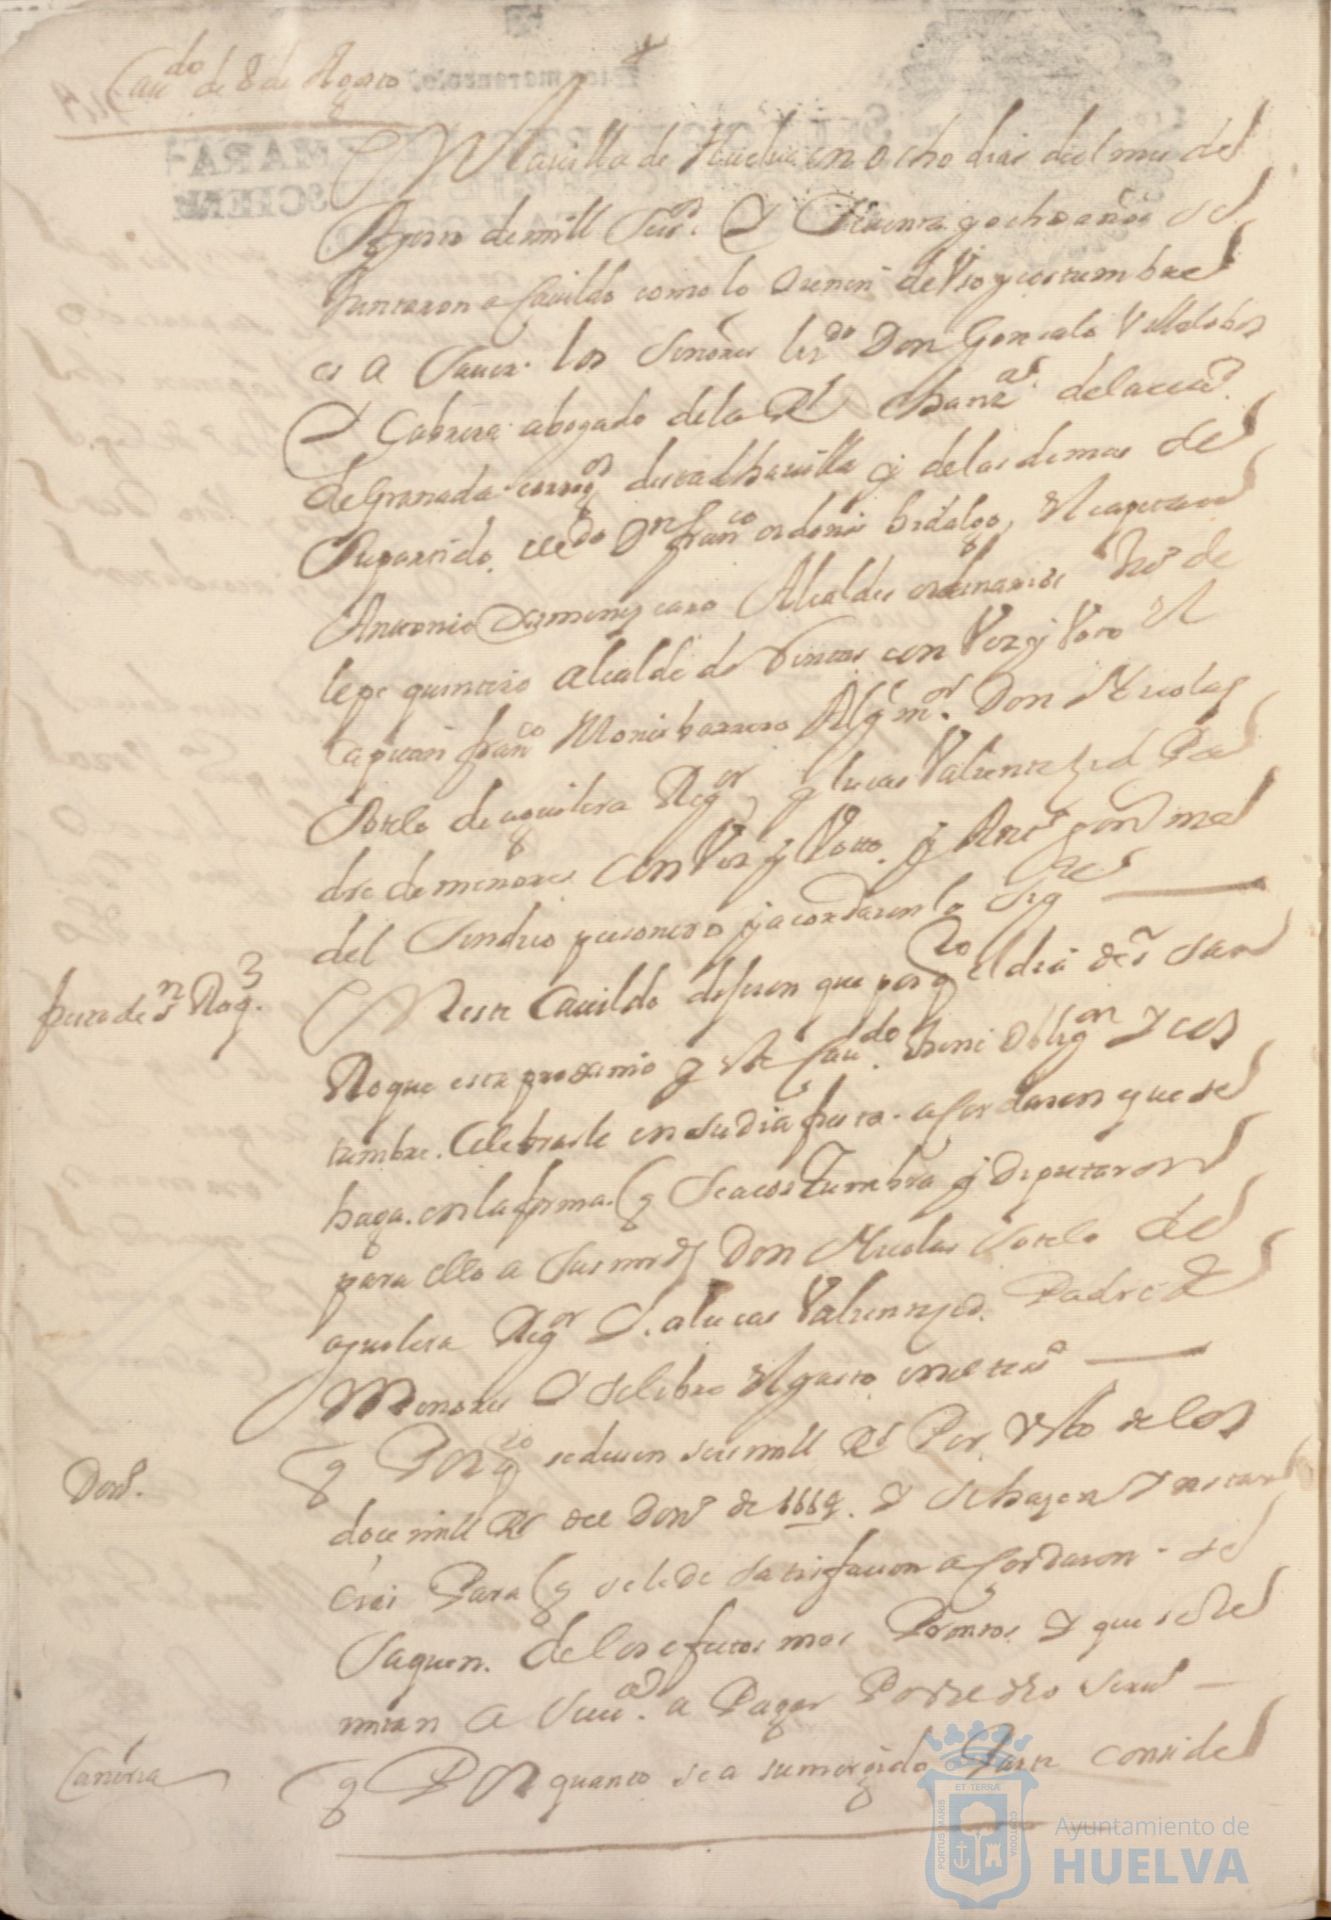 Caudo de 8 de Agosto
En la villa de Huelva en ocho dias del mes de
Agosto de mill Seisos y Setenta y ocho años se
Juntaron a Cauildo como lo tienen de Vso y costumbre
es a Sauer los Señores lizdo Don Gonzalo Villalobos
y Cabrera abogado de la Rl chanzas de la ciud
de Granada corregor desta dha uilla y de las demas de
Su partido, lizdo Dn franco ordoñes hidalgo, el capitan
Antonio Ximenez caro Alcaldes ordinarios Juo de
lepe quintero alcalde de Sintas con Voz y Voto el
capitan franco Monis barrero Algl mor Don Nicolas
Sotelo de aguilera Regor y lucas Valiente Jed Pa
dre de menores con Voz y Voto y Anto gon mes
del Sindico personero y acordaron lo sigte
En este Cauildo dijeron que por qto el dia de sr San
Roque esta proximo y este Caudo tiene obligon y cos
tumbre Celebrarle en su dia fiesta acordaron que se
haga en la forma q Se acostumbra y diputaron
para ello a Sus mrds Don Nicolas Sotelo de
aguilera Regor y a lucas Valiente Jed Padre de
Menores y se libre el gasto en el
fiesta de sn Roq
y Por qto se deuen seis mill Rs Por resto de los
doce mill Rs del Dono de y se hazen instan
cias Para q se le de satisfacion acordaron se
saquen de los efectos mas Promtos y que se Re
mitan a Seuia a Pagar
Dono
y Por quanto se a sumergido Parte conside
Canoria
Ayuntamiento de
HUELVA
PORTUS MARIS
ET TERRA
CUSTODIA